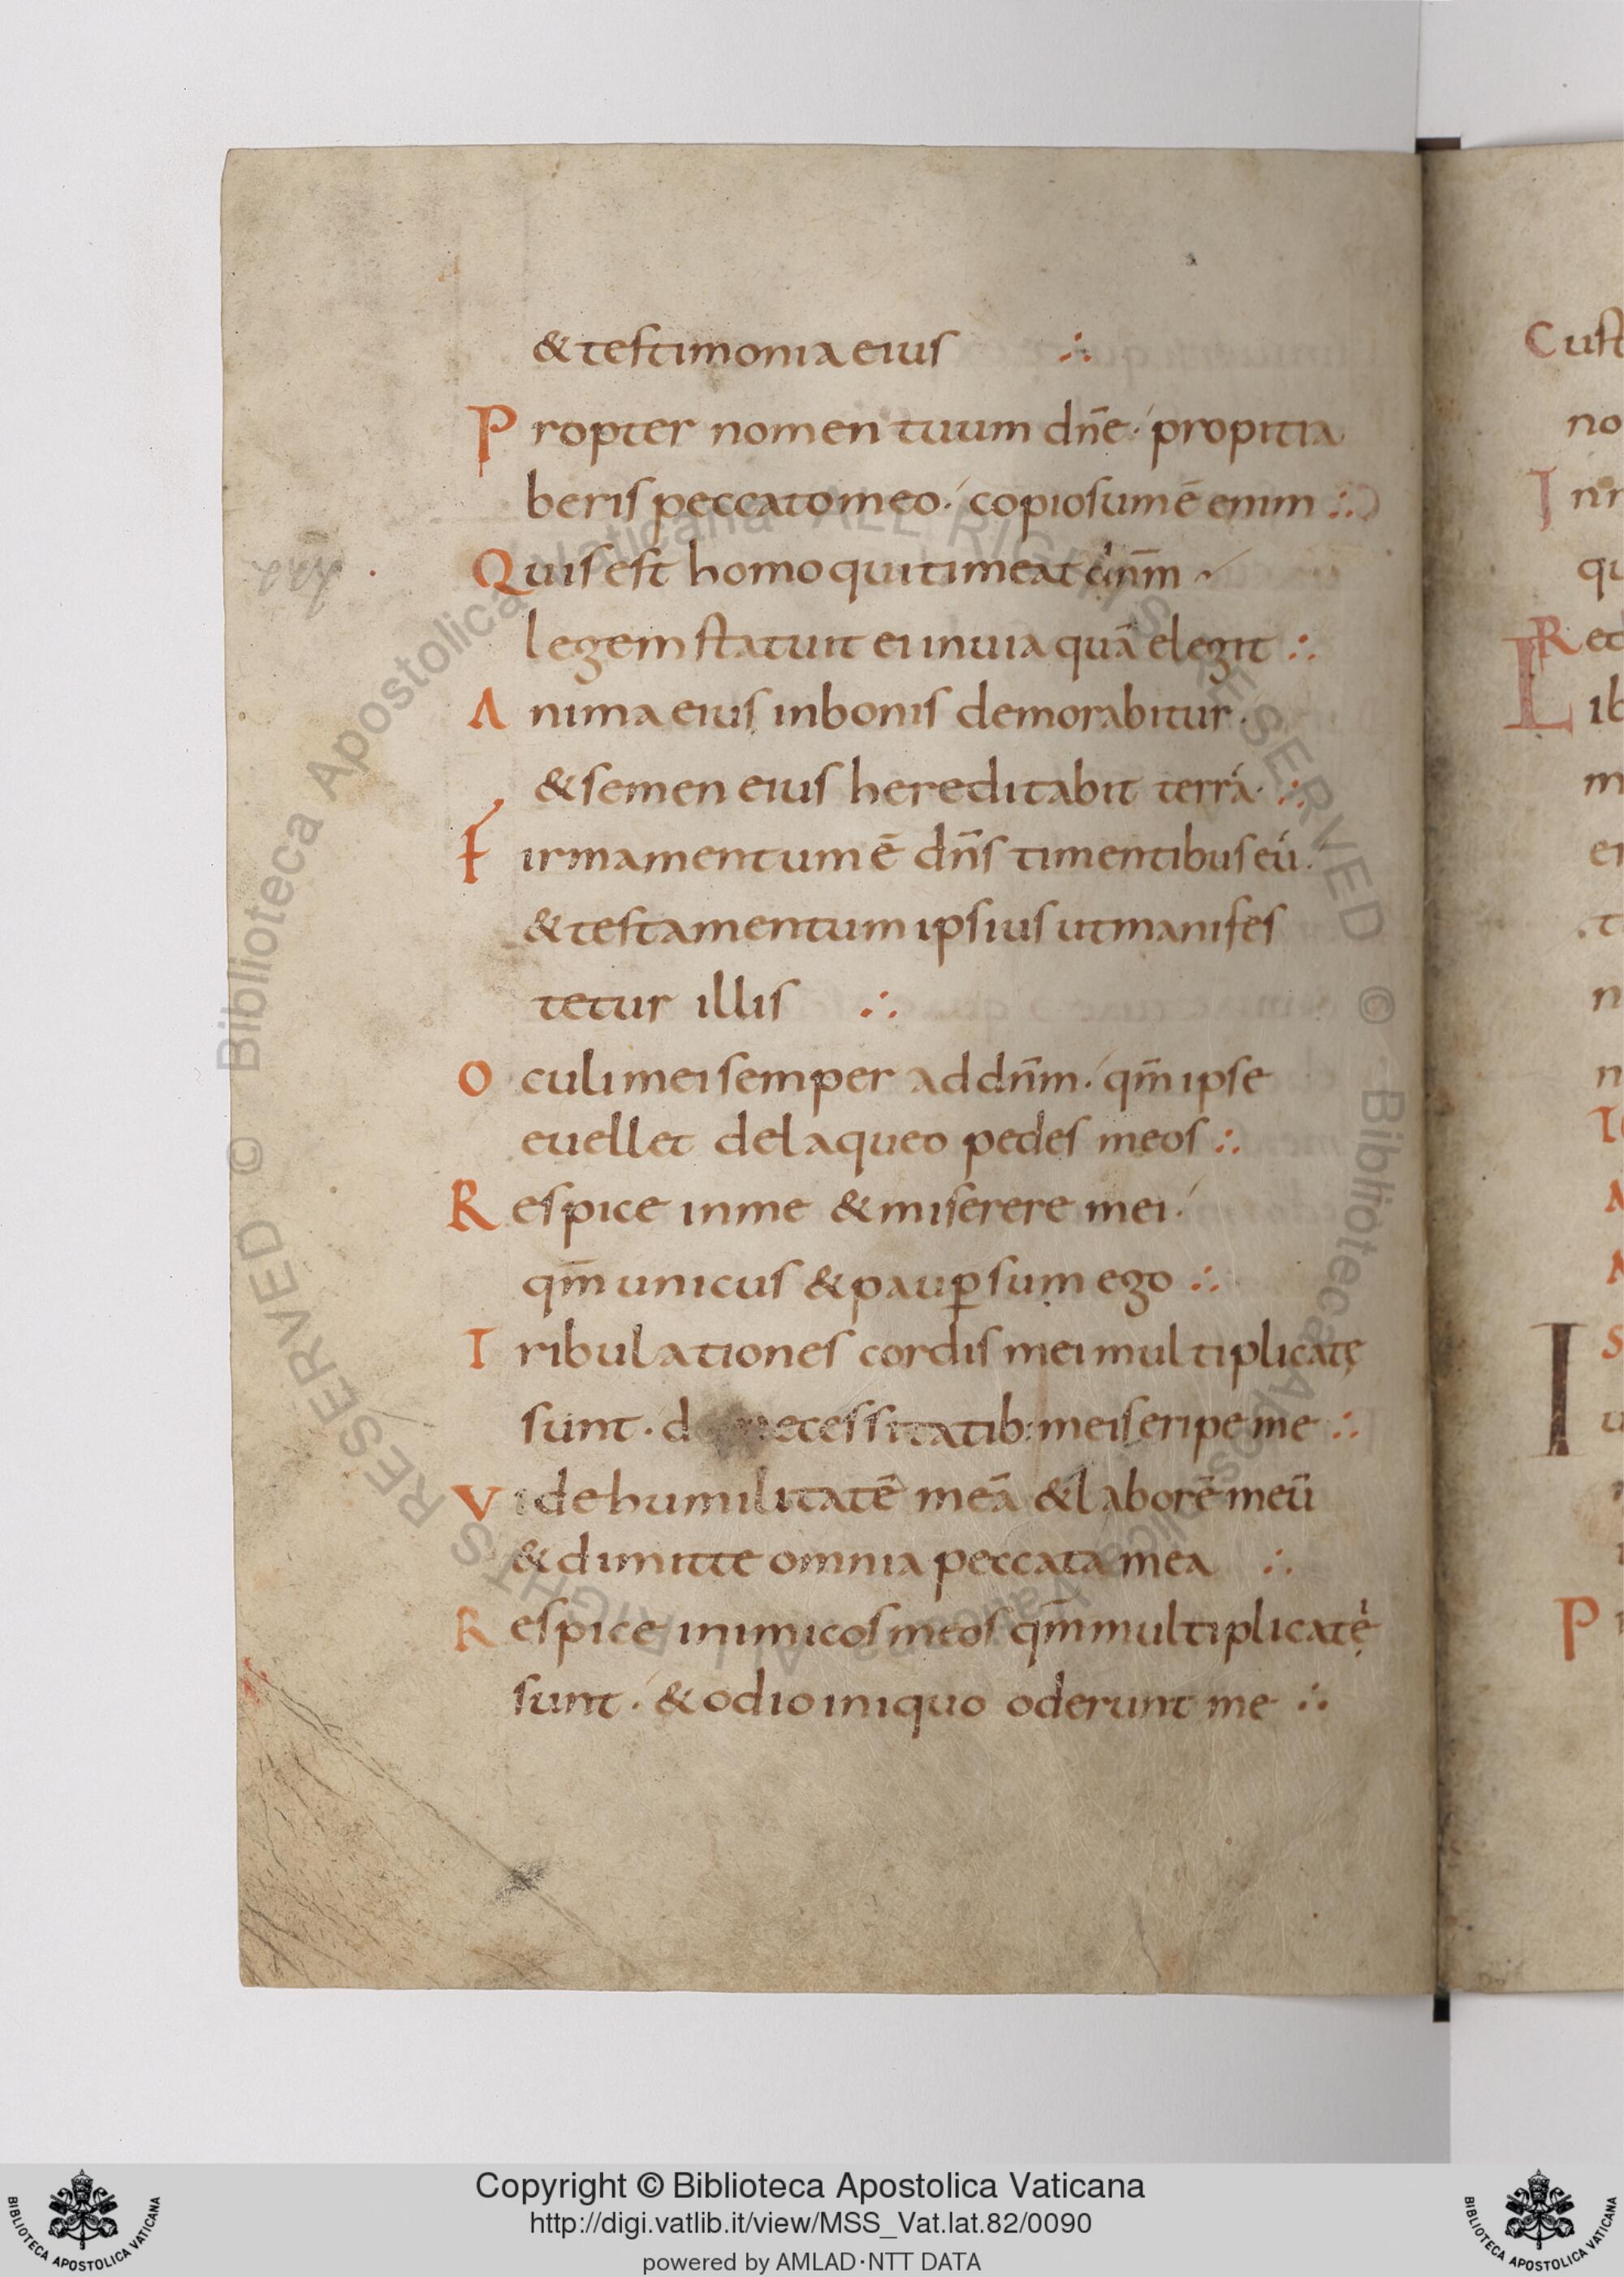 & testimonia eius ∴
Propter nomen tuum dn̄e · propitia
beris peccato meo · copiosum ē enim ∴
Quis est homo qui timeat dn̄m
legem statuit ei in uia quā elegit ∴
Anima eius in bonis demorabitur ·
& semen eius hereditabit terrā · ∴
Firmamentum ē dn̄s timentibus eū ·
& testamentum ipsius ut manifes
tetur illis ∴
Oculi mei semper ad dn̄m · qm̄ ipse
euellet de laqueo pedes meos ∴
Respice in me & miserere mei ·
qm̄ unicus & paup̄ sum ego ∴
Tribulationes cordis mei multiplicatę
sunt · necessitatib: meis eripe me ∴
Vide humilitatē meā & laborē meū
& dimitte omnia peccata mea ∴
Respice inimicos meos qm̄ multiplicatę
sunt · & odio iniquo oderunt me ∴
Copyright © Biblioteca Apostolica Vaticana
http://digi.vatlib.it/view/MSS_Vat.lat.82/0090
powered by AMLAD·NTT DATA
BIBLIOTECA APOSTOLICA VATICANA
BIBLIOTECA APOSTOLICA VATICANA